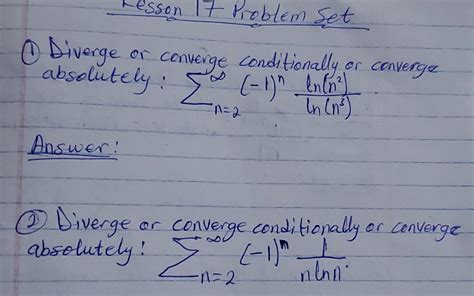 Lesson 17 Problem Set
① Diverge or converge conditionally or converge
absolutely: ∑_{n=2}^{∞} (-1)^n ln(n²)/ln(n³).
Answer:
② Diverge or converge conditionally or converge
absolutely: ∑_{n=2}^{∞} (-1)^n 1/(n ln n).